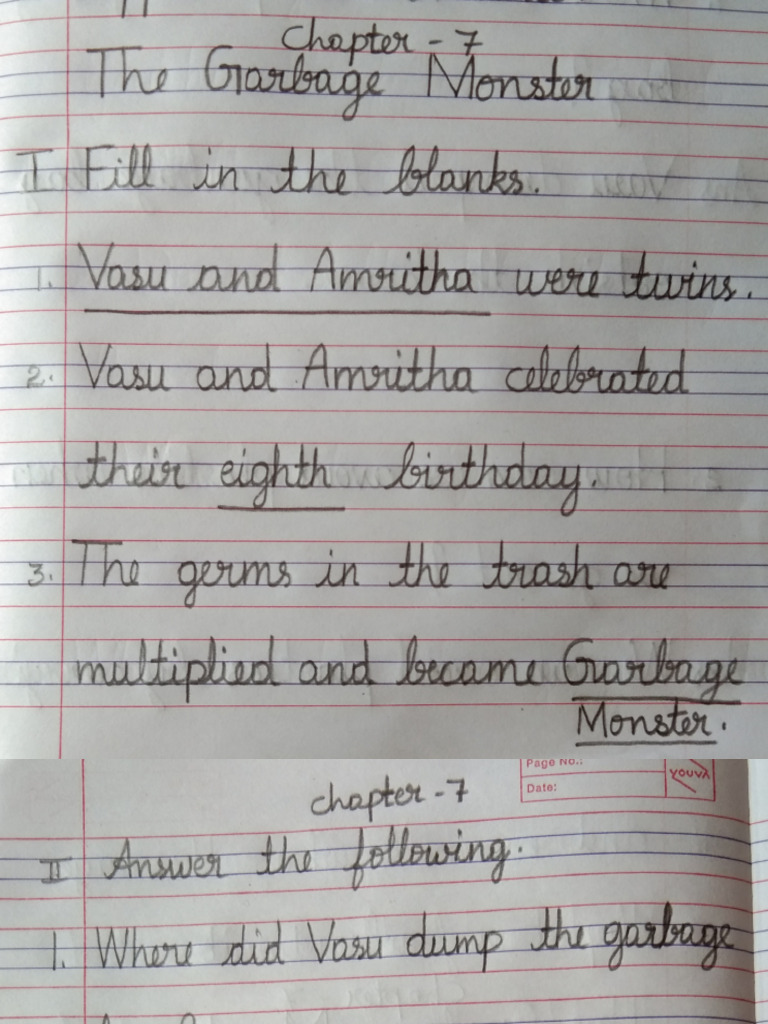 Chapter - 7
The Garbage Monster
I Fill in the blanks.
1. Vasu and Amritha were twins.
2. Vasu and Amritha celebrated
their eighth birthday.
3. The germs in the trash are
multiplied and became Garbage
Monster.
Page No.:
Date:
YOUVA
chapter - 7
II Answer the following.
1. Where did Vasu dump the garbage